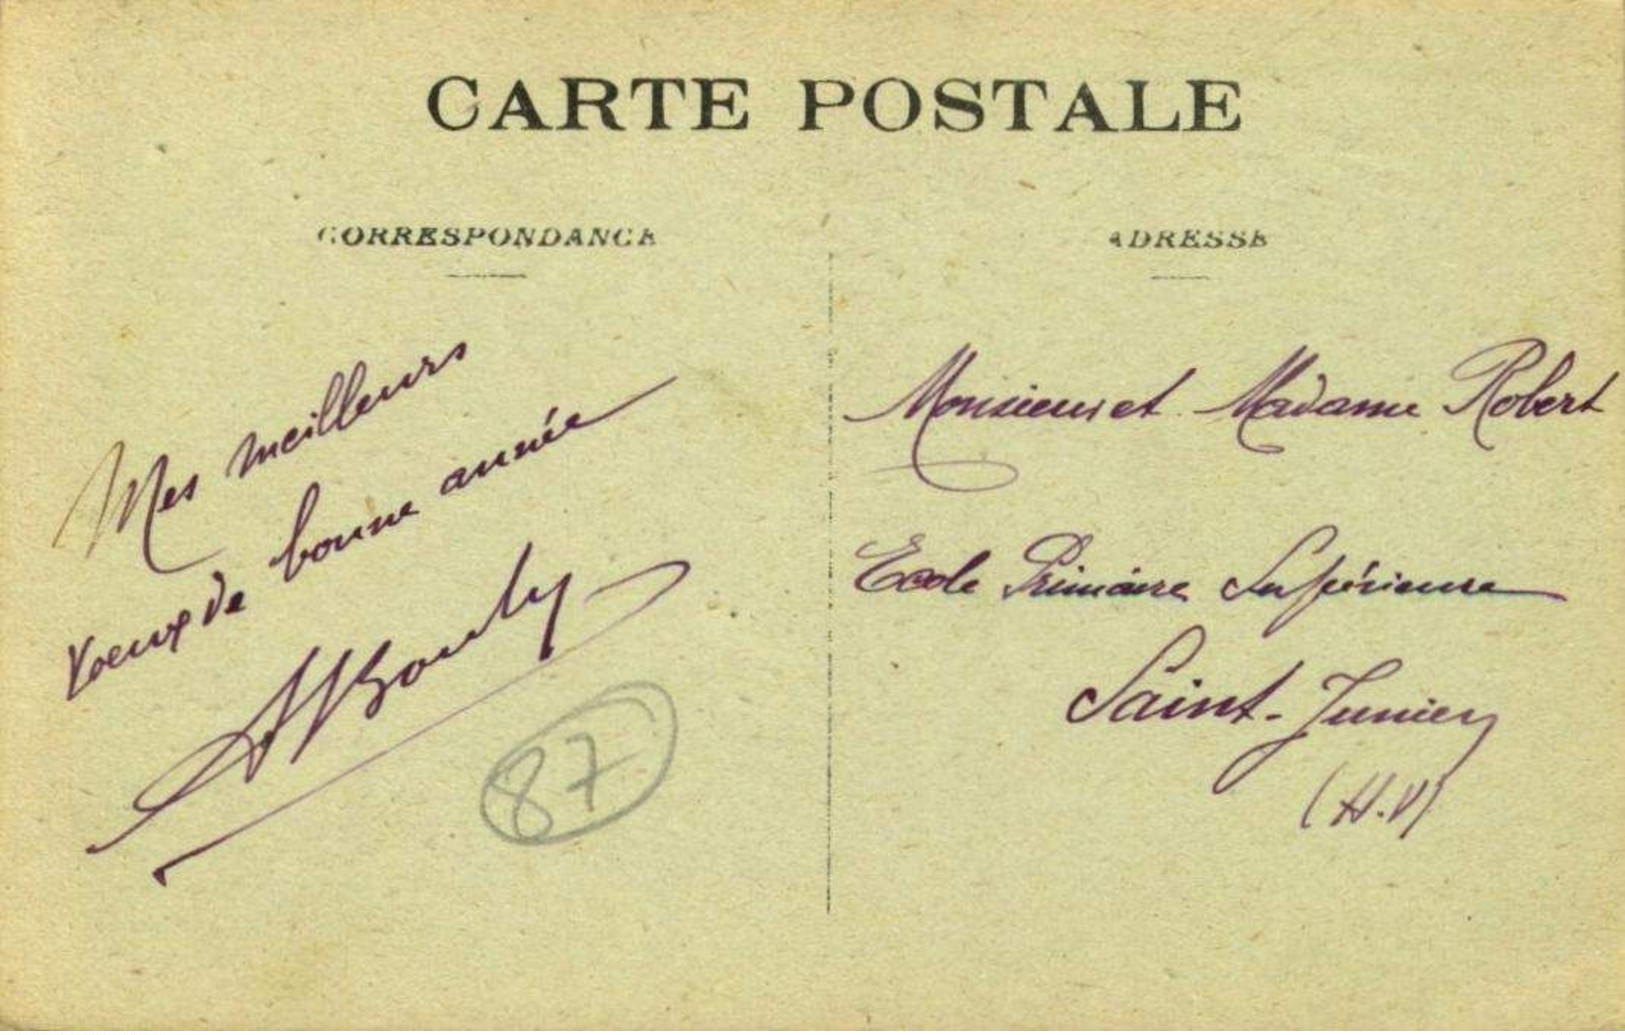 CARTE POSTALE
CORRESPONDANCE
Mes meilleurs
voeux de bonne année
87
ADRESSE
Monsieur et Madame Robert
Ecole Primaire Supérieure
Saint-Junien
(H.V)